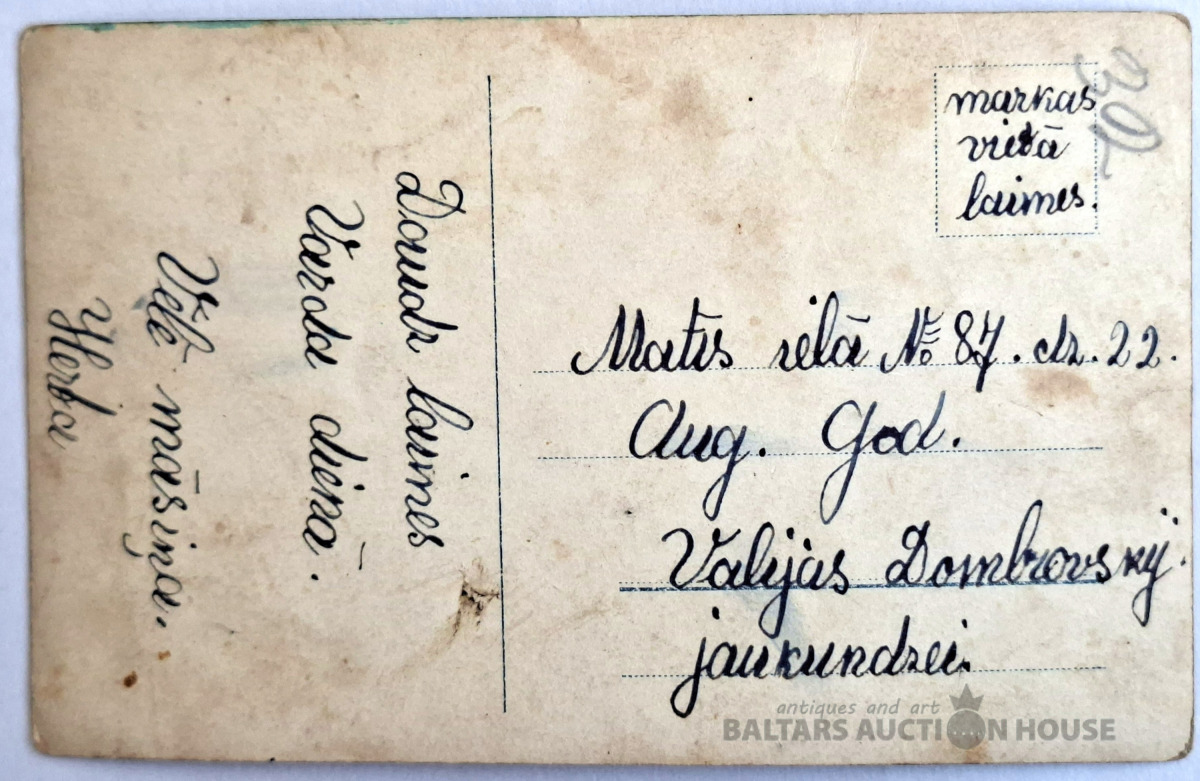 Daudz laimes
Varda dienā.
Vēlē māsiņa.
Herta
markas
vietā
laimes.
Matīs ielā № 87. dz. 22.
Aug. God.
Valijas Dombrovskÿ.
jaukundzei.
antiques and art
BALTARS AUCTION HOUSE